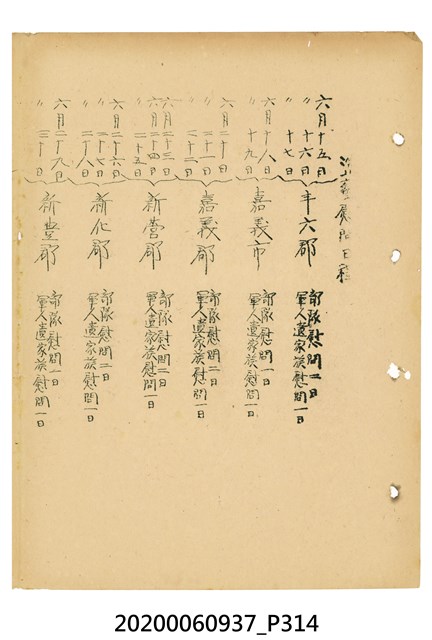 慰問日程
六月十五日
〃十六日
〃十七日
斗六郡
部隊慰問二日
軍人遺家族慰問一日
六月十八日
〃十九日
嘉義市
部隊慰問一日
軍人遺家族慰問一日
六月二十日
〃二十一日
〃二十二日
嘉義郡
部隊慰問二日
軍人遺家族慰問一日
六月二十三日
六月二十四日
〃二十五日
新営郡
部隊慰問二日
軍人遺家族慰問一日
六月二十六日
〃二十七日
〃二十八日
新化郡
部隊慰問二日
軍人遺家族慰問一日
六月二十九日
〃三十日
新豊郡
部隊慰問一日
軍人遺家族慰問一日
20200060937_P314